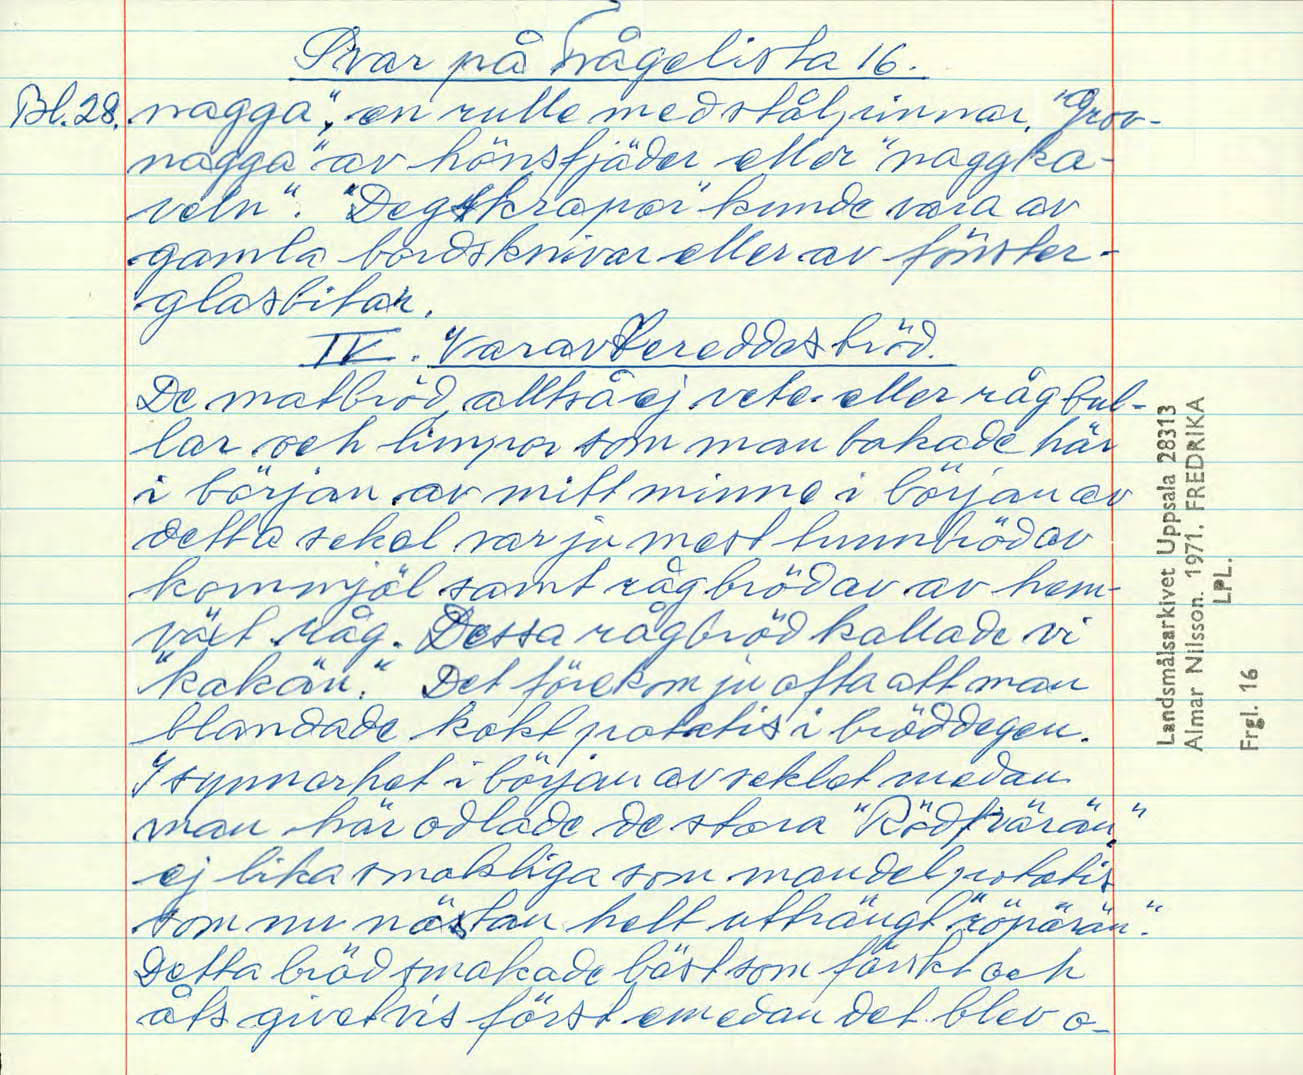 Svar på Frågelista 16.
Bl. 28. nagga", en rulle med stålpinnar. "Grov-
nagga" av hönsfjäder eller "naggka-
veln". "Degskrapor" kunde vara av
gamla bordsknivar eller av fönster-
glasbitar.
IV. Varav bereddes bröd.
De matbröd, alltså ej vete- eller rågbul-
lar och limpor som man bakade här
i början av mitt minne i början av
detta sekel var ju mest tunnbröd av
kornmjöl samt rågbröd av av hem-
växt råg. Dessa rågbröd kallade vi
"kakän." Det förekom ju ofta att man
blandade kokt potatis i bröddegen.
I synnerhet i början av seklet medan
man här odlade de stora "Rödpärän"
ej lika smakliga som mandelpotatis
som nu nästan helt utträngt "röpärän".
Detta bröd smakade bäst som färskt och
åts givetvis först emedan det blev o-
Landsmålsarkivet Uppsala 28313
Almar Nilsson. 1971. FREDRIKA
LPL.
Frgl. 16